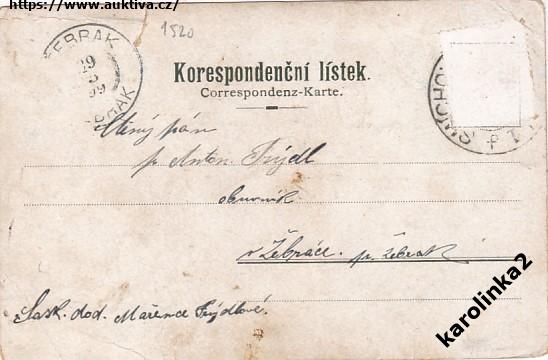 https://www.auktiva.cz/
1520
ŽEBRÁK
29
99
Korespondenční lístek.
Correspondenz-Karte.
Ctěný pán
p. Anton. Frýdl
obuvník
v Žebráce. p. Žebrák
Lask. dod. Mařence Frýdlové.
karolinka2